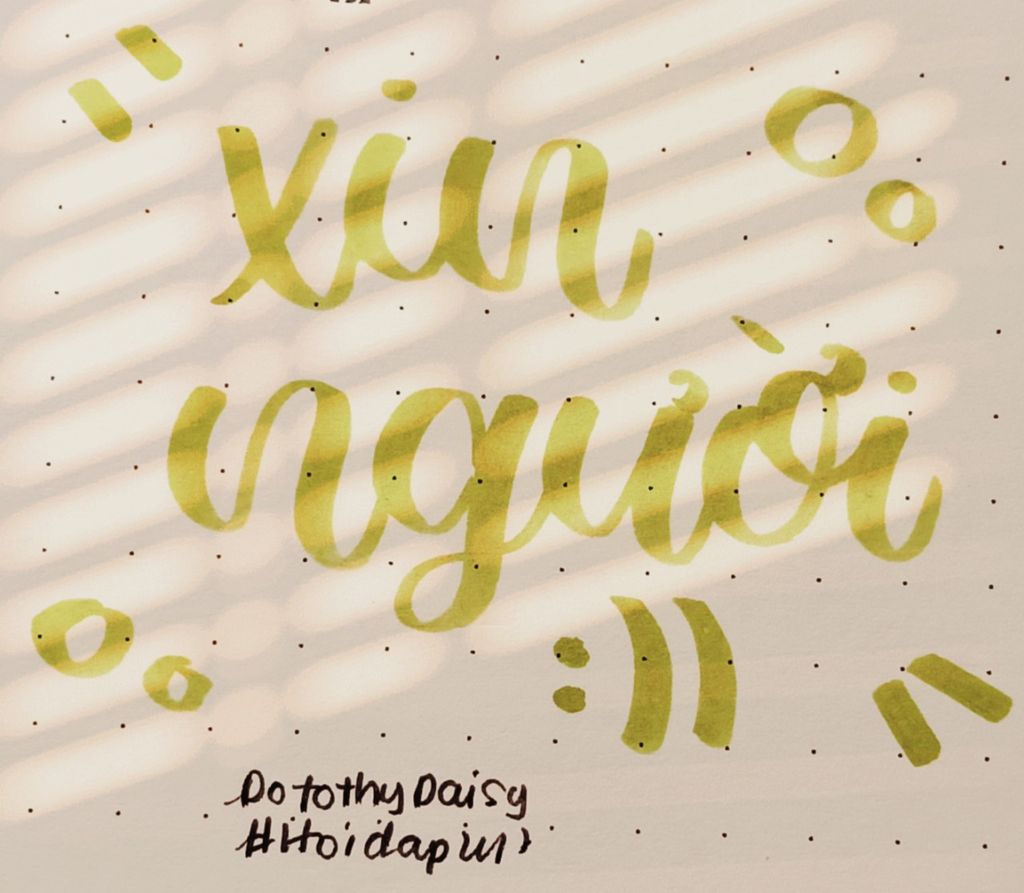 xin
người
:))
Dotothy Daisy
#Hoidap